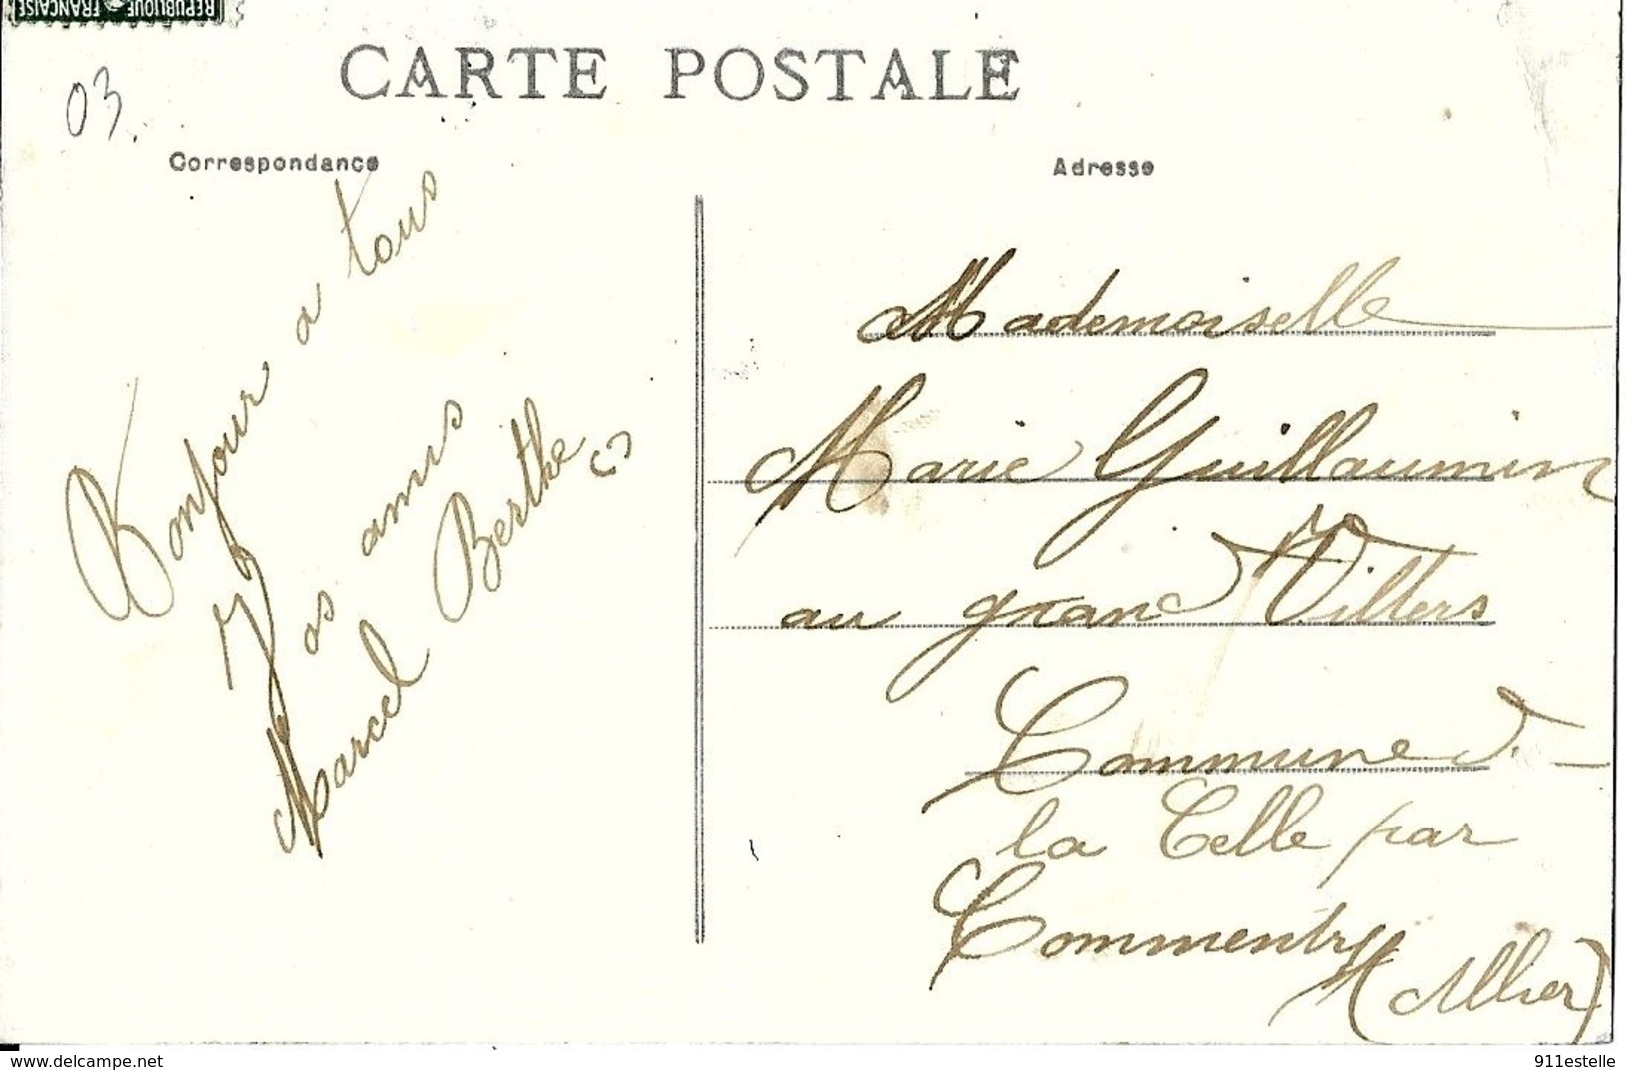 REPUBLIQUE FRANÇAISE
03.
CARTE POSTALE
Correspondance
Adresse
Bonjour a tous
Vos amis
Marcel Berthe
Mademoiselle
Marie Guillaumin
au grand Villers
Commune de
la Celle par
Commentry
(Allier)
www.delcampe.net
911estelle